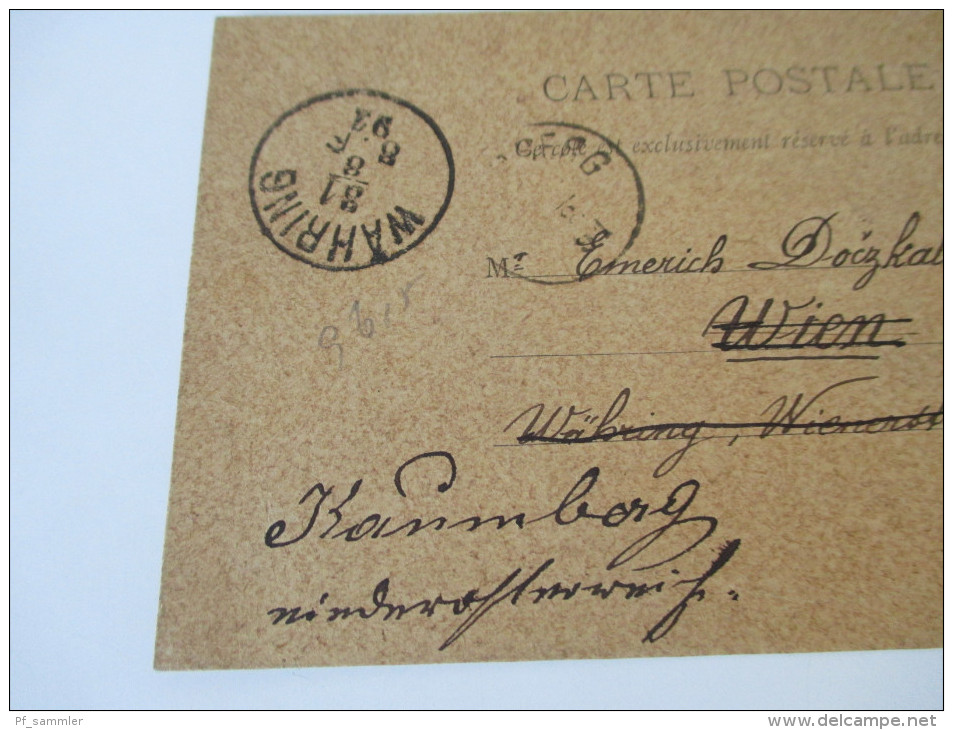 CARTE POSTALE
Ce côté est exclusivement réservé à l'adre
WÄHRING
31
8
8. F
92
Mr Emerich Dočzkal
Wien
Währing, Wienerst
Kaumberg
niederösterreich.
Pf_sammler
www.delcampe.net